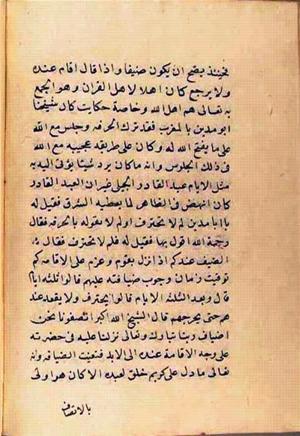 فحينئذ يصح ان يكون ضيفا واذا قال اقام عنده
ولا يرجع كان اهلا لاهل القران وهو الجمع
به تعالى هم اهل الله وخاصة حكايت كان شيخنا
ابو مدين بالمغرب قد ترك الحرفه وجلس مع الله
على ما يفتح الله له وكان على طريقه عجيبه مع الله
فى ذلك الجلوس وانه ما كان يرد شيئا يؤتى اليه به
مثل الامام عبد القادر الجيلى غير ان العبد القادر
كان انهض فى الظاهر لما يعطيه الشرف فقيل له
يا ابا مدين لم لا تحترف اولم لا تقول بالحرفه فقال
رحمة الله اقول بها فقيل له فلم لا تحترف فقال له
الضيف عندكم اذا نزل بقوم وعزم على الاقامه كم
توقيت زمان وجوب ضيافته عليهم قالوا ثلثه ايام
قال وبعد الثلثه الايام قالوا يحترف ولا يقعد عنده
هم حتى يحرجهم قال الشيخ الله اكبر انصفونا نحن
اضياف ربنا تبارك وتعالى نزلنا عليه فى حضرته
على وجه الاقامة عنده الى الابد فتعينت الضيافه وانه
تعالى ما دل على كريم خلق لعبده الا كان هو اولى
بالاتصاف